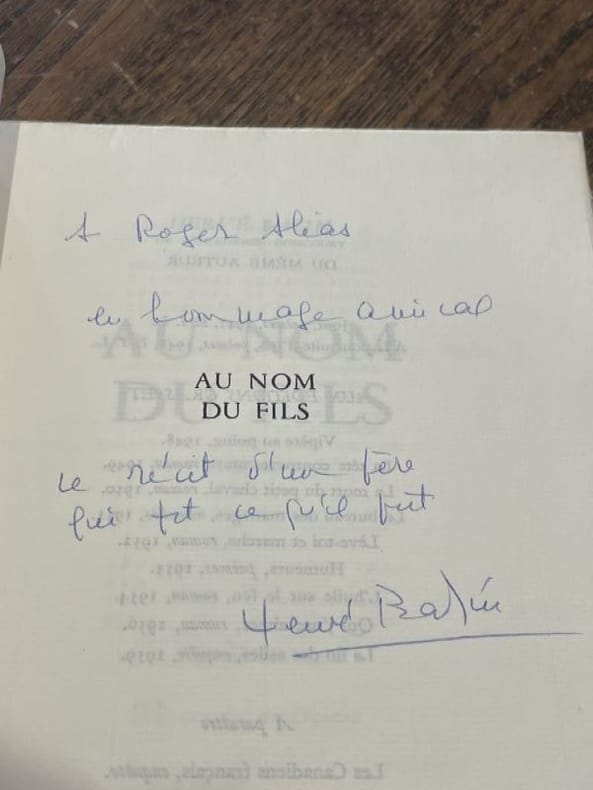 A Roger Alias
en hommage amical
AU NOM
DU FILS
ce récit d'un père
qui fit ce qu'il put
Hervé Bazin